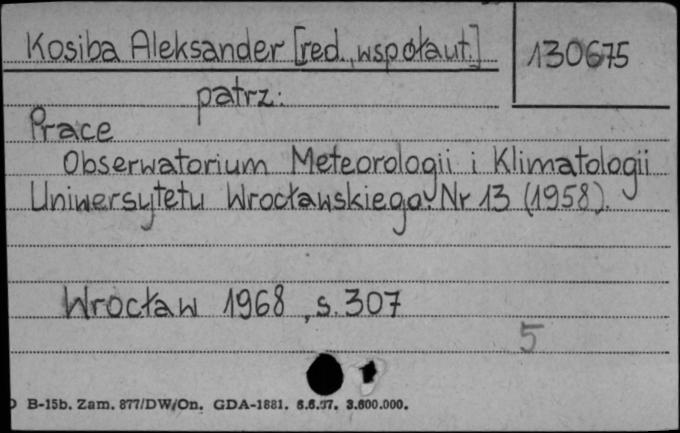 Kosiba Aleksander [red., współaut.]
130675
patrz:
Prace
Obserwatorium Meteorologii i Klimatologii
Uniwersytetu Wrocławskiego. Nr 13 (1958).
Wrocław 1968, s. 307
5
B-15b. Zam. 877/DW/On. GDA-1881. 6.6.57. 3.600.000.